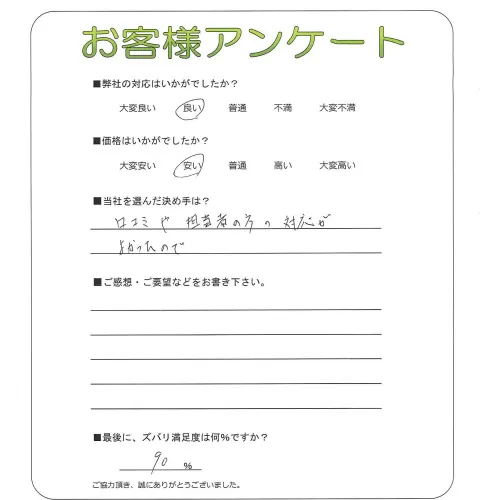 お客様アンケート
■弊社の対応はいかがでしたか？
大変良い 良い 普通 不満 大変不満
■価格はいかがでしたか？
大変安い 安い 普通 高い 大変高い
■当社を選んだ決め手は？
口コミや担当者の方の対応が
よかったので
■ご感想・ご要望などをお書き下さい。
■最後に、ズバリ満足度は何%ですか？
90 %
ご協力頂き、誠にありがとうございました。